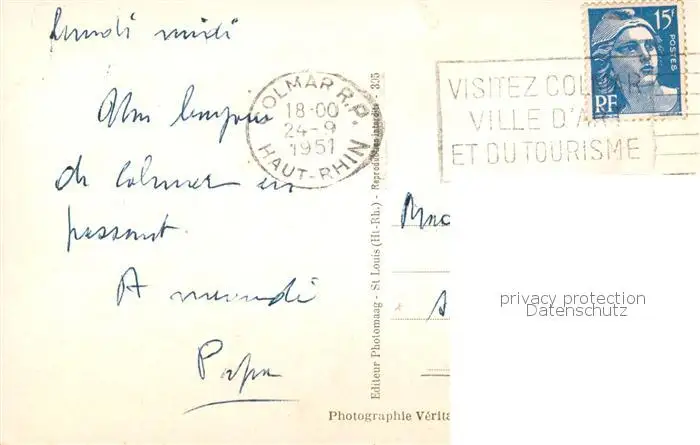 lundi midi
bonjour
de Colmar en
passant.
A
Papa
COLMAR R.P.
18-00
24-9
1951
HAUT-RHIN
VISITEZ COLMAR
VILLE D'ART
ET DU TOURISME
15F
POSTES
RF
Editeur Photomaag - St Louis (Ht-Rh.) - Reproduction interdite 395
privacy protection
Datenschutz
Photographie Vérita